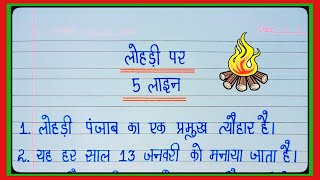 लोहड़ी पर
5 लाइन
1. लोहड़ी पंजाब का एक प्रमुख त्यौहार है।
2. यह हर साल 13 जनवरी को मनाया जाता है।